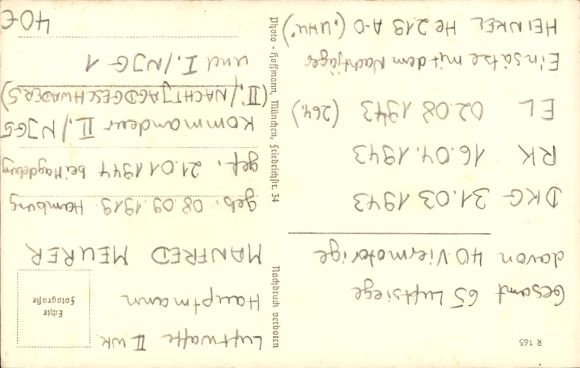 R 165
Gesamt 65 Luftsiege
davon 40 Viermotorige
DKG 31.03.1943
RK 16.04.1943
EL 02.08.1943 (264.)
Einsätze mit dem Nachtjäger
HEINKEL He 219 A-0 („UHU“)
Photo-Hoffmann, München, Friedrichstr. 34
Nachdruck verboten
Luftwaffe II WK
Hauptmann
Echte
Fotografie
MANFRED MEURER
geb. 08.09.1919 Hamburg
gef. 21.01.1944 bei Magdeburg
Kommandeur II./NJG5
(II./NACHTJAGDGESCHWADER 5)
und I./NJG 1
40€